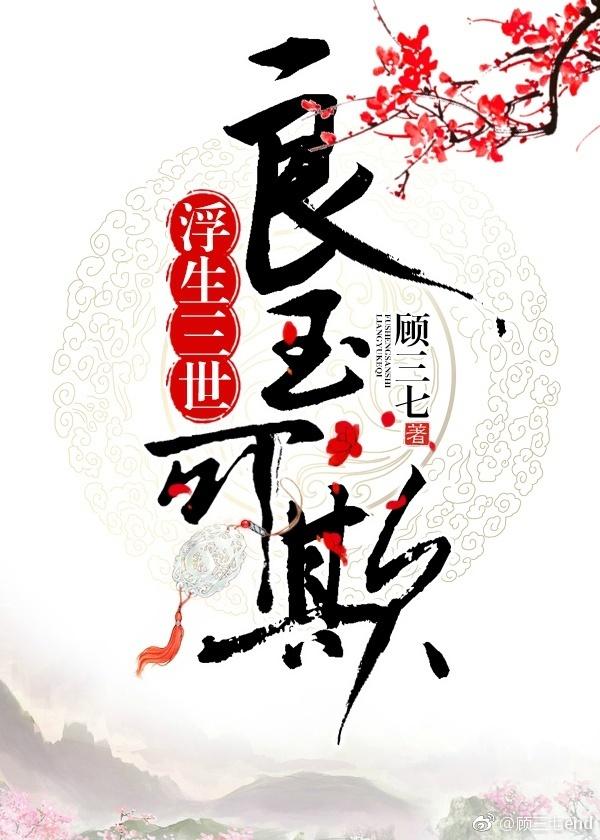 浮生三世
良玉可欺
FUSHENGSANSHI
LIANGYUKEQI
顾三七
著
@顾三七end